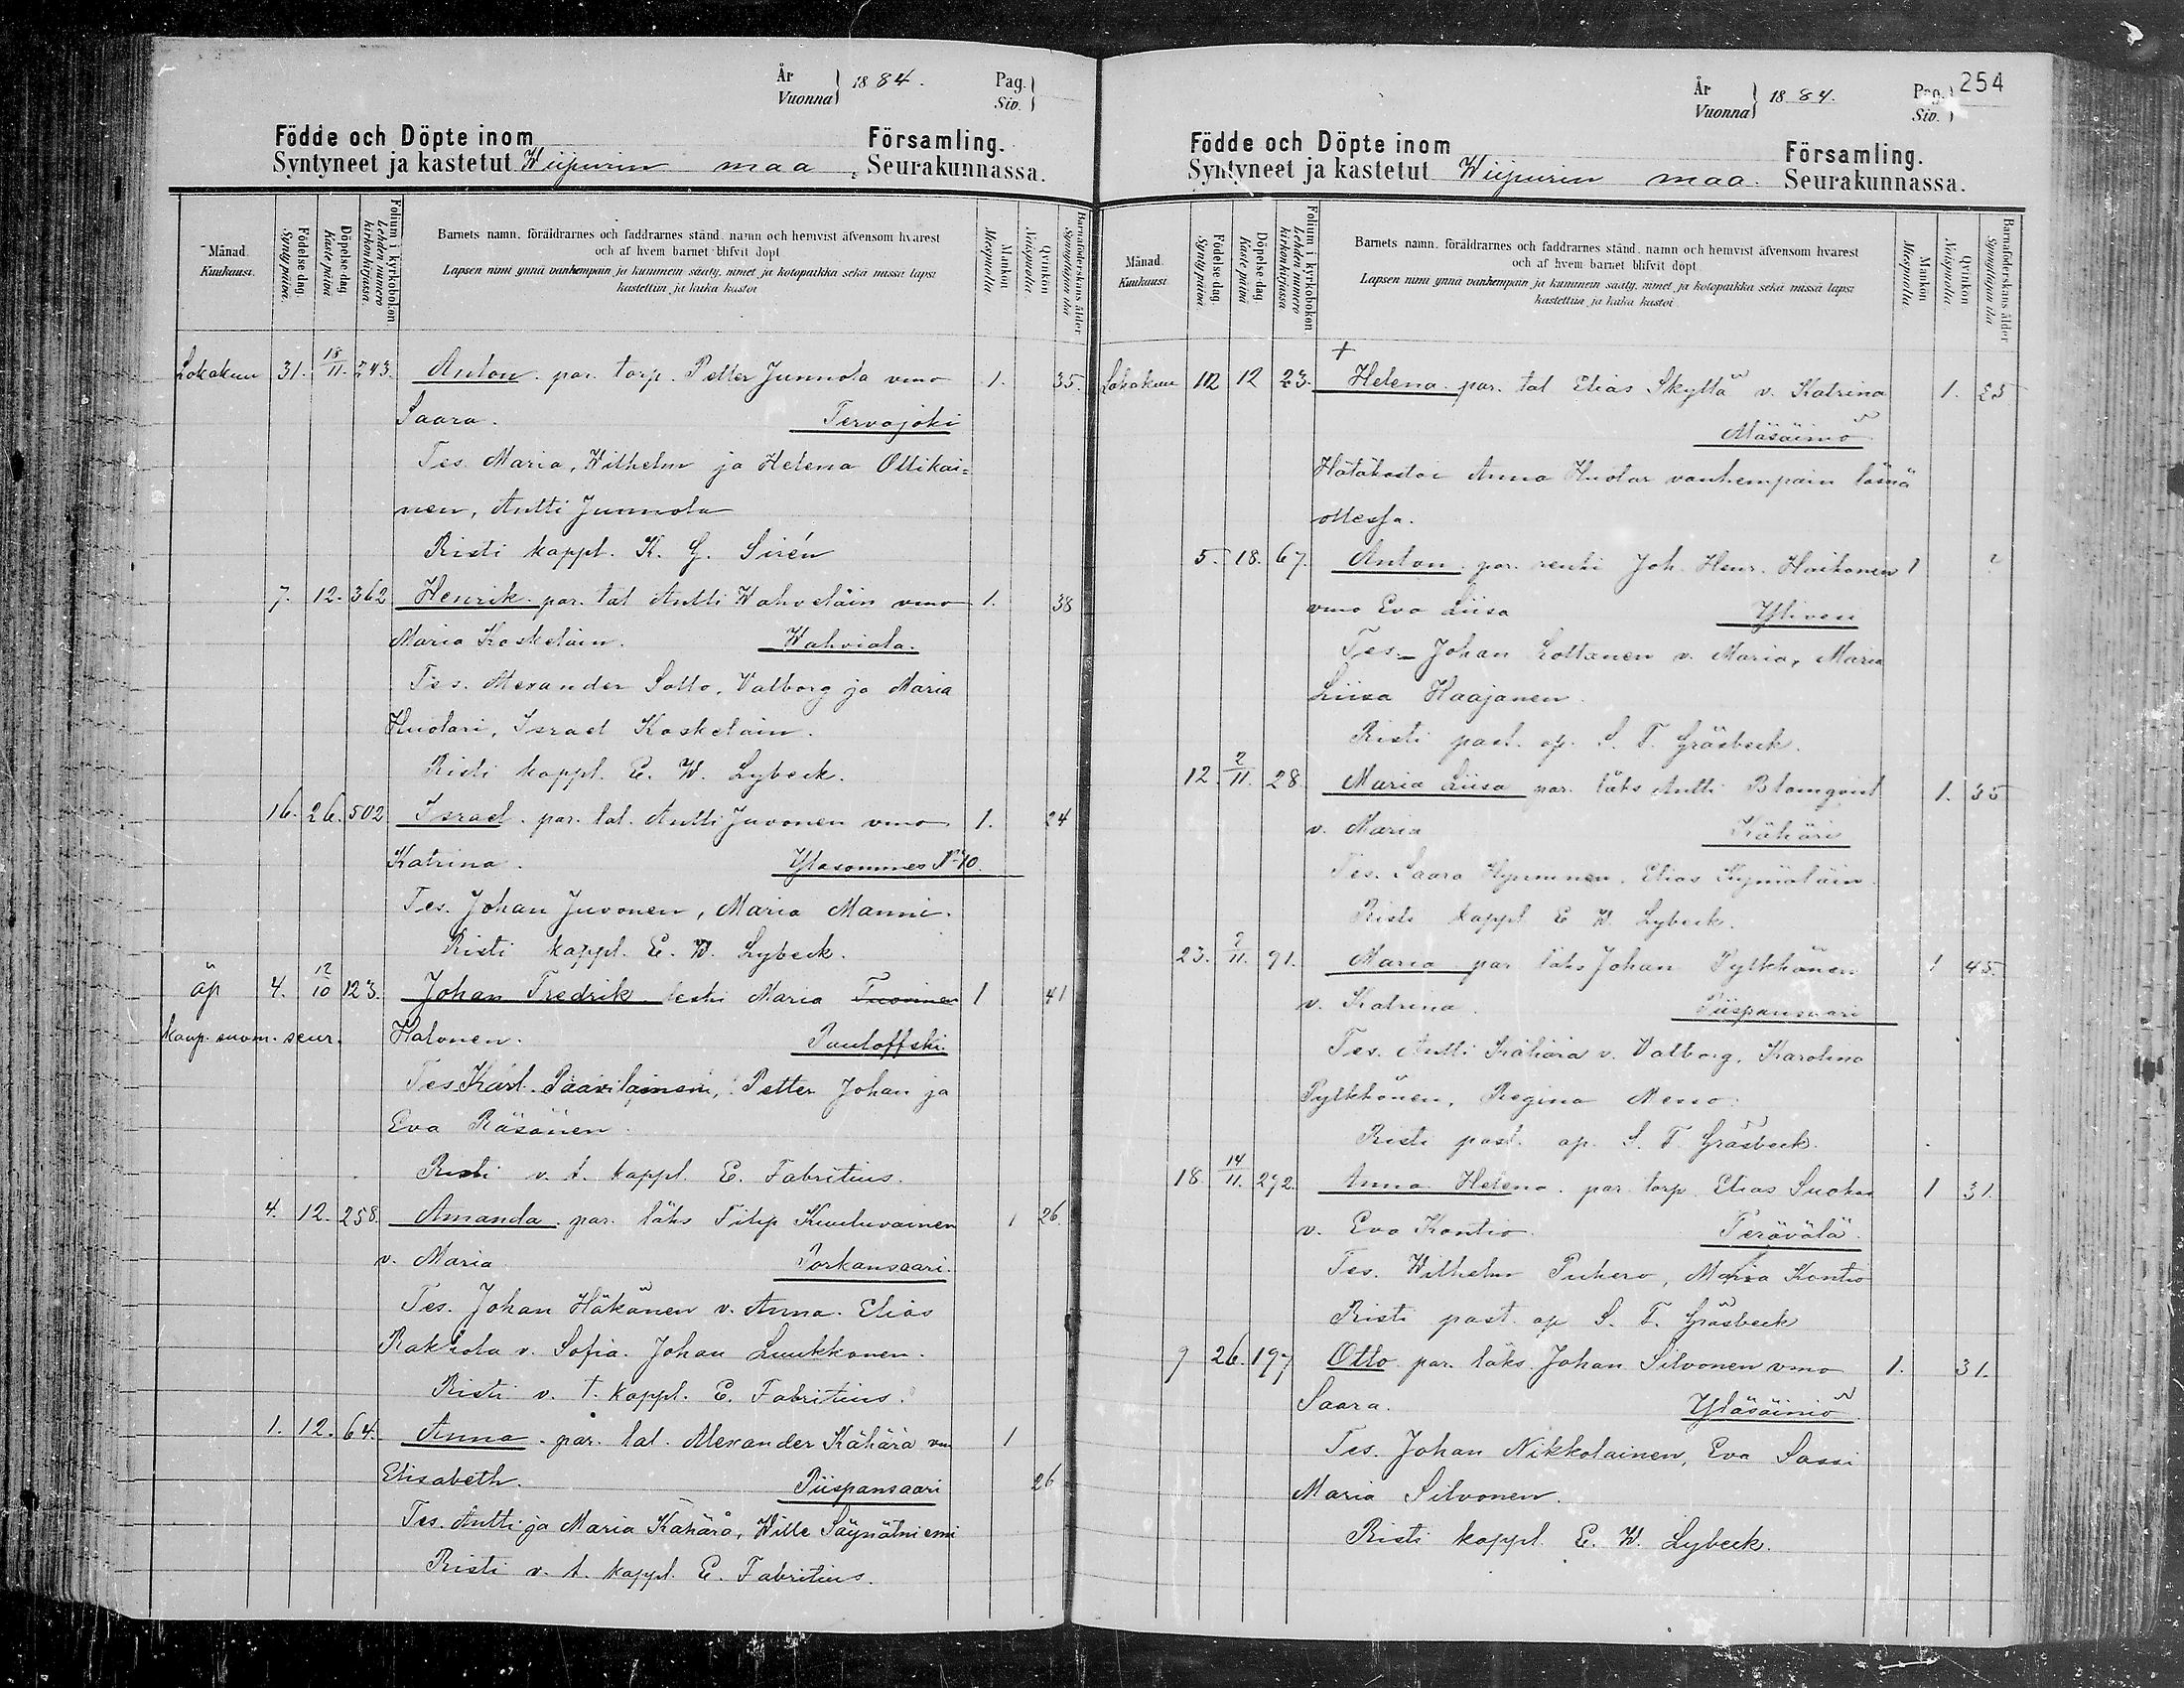 År
Vuonna } 1884.
Pag.
Siv. }
Födde och Döpte inom Församling.
Syntyneet ja kastetut Wiipurin maa Seurakunnassa.
Månad. Kuukausi.
Födelse dag. Synty päivä.
Döpelse dag. Kaste päivä
Folium i kyrkoboken Lehden numero kirkonkirjassa.
Barnets namn, föräldrarnes och faddrarnes stånd, namn och hemvist äfvensom hvarest
och af hvem barnet blifvit döpt
Lapsen nimi ynnä vanhempain ja kummein sääty, nimet ja kotopaikka sekä missä lapsi
kastettiin ja kuka kastoi
Mankön Miespuolia
Qvinkön Naispuolia.
Barnaföderskans ålder Synnyttäjän ikä
Lokakuu 31. 18/11. 243. Anton. par. torp. Petter Junnola vmo 1. 35.
Saara. Tervajoki
Tes. Maria, Wilhelm ja Helena Ollikai=
nen, Antti Junnola
Risti kappl. K. G. Sirén
7. 12. 362 Henrik par. tal Antti Wahveläin vmo 1. 38
Maria Koskeläin. Wahviala.
Tes. Alexander Sotto, Valborg ja Maria
Huolari, Israel Koskelain.
Risti kappl. E. W. Lybeck.
16. 26. 502 Israel. par. tal. Antti Juvonen vmo 1. 24
Katrina. Yläsommee № 10.
Tes. Johan Juvonen, Maria Manni.
Risti kappl. E. W. Lybeck.
äp 4. 12/10 123. Johan Fredrik leski Maria Tuovinen 1 41
kaup. suom. seur. Halonen. Pauloffski.
Tes. Karl Paavilainen, Petter Johan ja
Eva Räsänen.
Risti v. t. kappl. E. Fabritius.
4. 12. 258. Amanda. par. läks Filip Kuuluvainen 1 26.
v. Maria Porkansaari.
Tes. Johan Häkänen v. Anna. Elias
Rakkola v. Sofia. Johan Luukkonen.
Risti v. t. kappl. E. Fabritius.
1. 12. 64. Anna. par. tal. Alexander Kähärä vm 1
Elisabeth. Piispansaari 26
Tes. Antti ja Maria Kähärä, Wille Säynätniemi
Risti v. t. kappl. E. Fabritius.
År
Vuonna } 1884.
Pag.
Siv. } 254
Födde och Döpte inom Församling.
Syntyneet ja kastetut Wiipurin maa. Seurakunnassa.
Månad. Kuukausi
Födelse dag. Synty päivä.
Döpelse dag. Kaste päivä
Folium i kyrkoboken Lehden numero kirkonkirjassa
Barnets namn, föräldrarnes och faddrarnes stånd, namn och hemvist äfvensom hvarest
och af hvem barnet blifvit döpt
Lapsen nimi ynnä vanhempain ja kummein sääty, nimet ja kotopaikka sekä missä lapsi
kastettiin ja kuka kastoi
Mankön Miespuolia.
Qvinkön Naispuolia.
Barnaföderskans ålder Synnyttäjän ikä
+
Lokakuu 12 12 23. Helena par. tal Elias Skyttä v. Katrina 1. 25
Alasäiniö
Hätäkastoi Anna Huolar vanhempain läsnä
ollessa.
5. 18. 67. Anton par. renki Joh. Henr. Haikonen 1 ?
vmo Eva Liisa Ylivesi
Tes. Johan Lottanen v. Maria, Maria
Liisa Haajanen.
Risti past. ap. S. T. Gräsbeck.
12. 2/11. 28. Maria Liisa par. läks Antti Blomqvist 1. 35
v. Maria Kähäri
Tes. Saara Hyvninen, Elias Kymäläin.
Risti kappl E W. Lybeck.
23. 2/11. 91. Maria par läks Johan Pylkkänen 1 45.
v. Katrina. Piispansaari
Tes. Antti Kähärä v. Valborg, Karolina
Pylkkänen, Regina Messo.
Risti past. ap. S. T. Gräsbeck.
18. 14/11. 272. Anna Helena. par. torp. Elias Suokas 1 31.
v. Eva Kontio. Perävälä.
Tes. Wilhelm Puhero, Maria Kontio
Risti past. ap S. T. Gräsbeck
9 26. 197 Otto par. läks Johan Silvonen vmo 1. 31.
Saara. Yläsäiniö.
Tes. Johan Nikkolainen, Eva Sassi
Maria Silvonen.
Risti kappl. E. W. Lybeck.